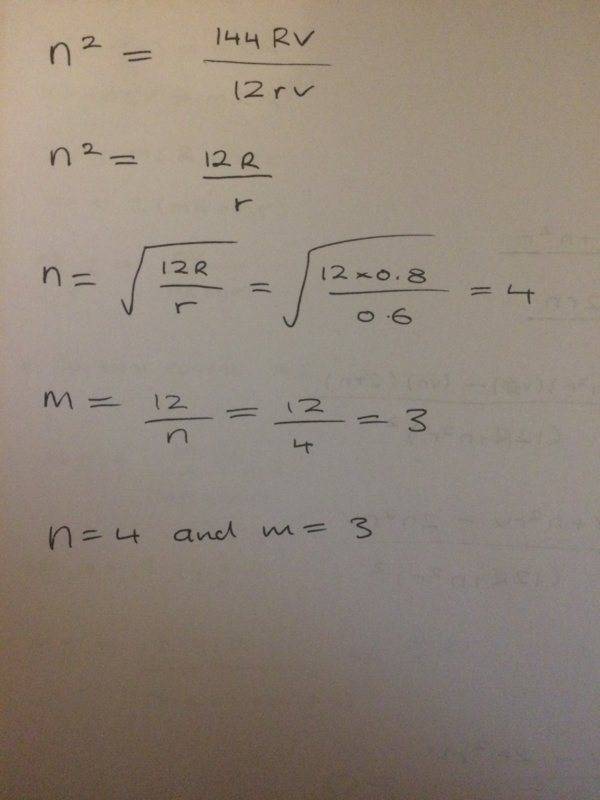 n² = 144RV / 12rv
n² = 12R / r
n = √(12R / r) = √(12×0.8 / 0.6) = 4
m = 12 / n = 12 / 4 = 3
n = 4 and m = 3